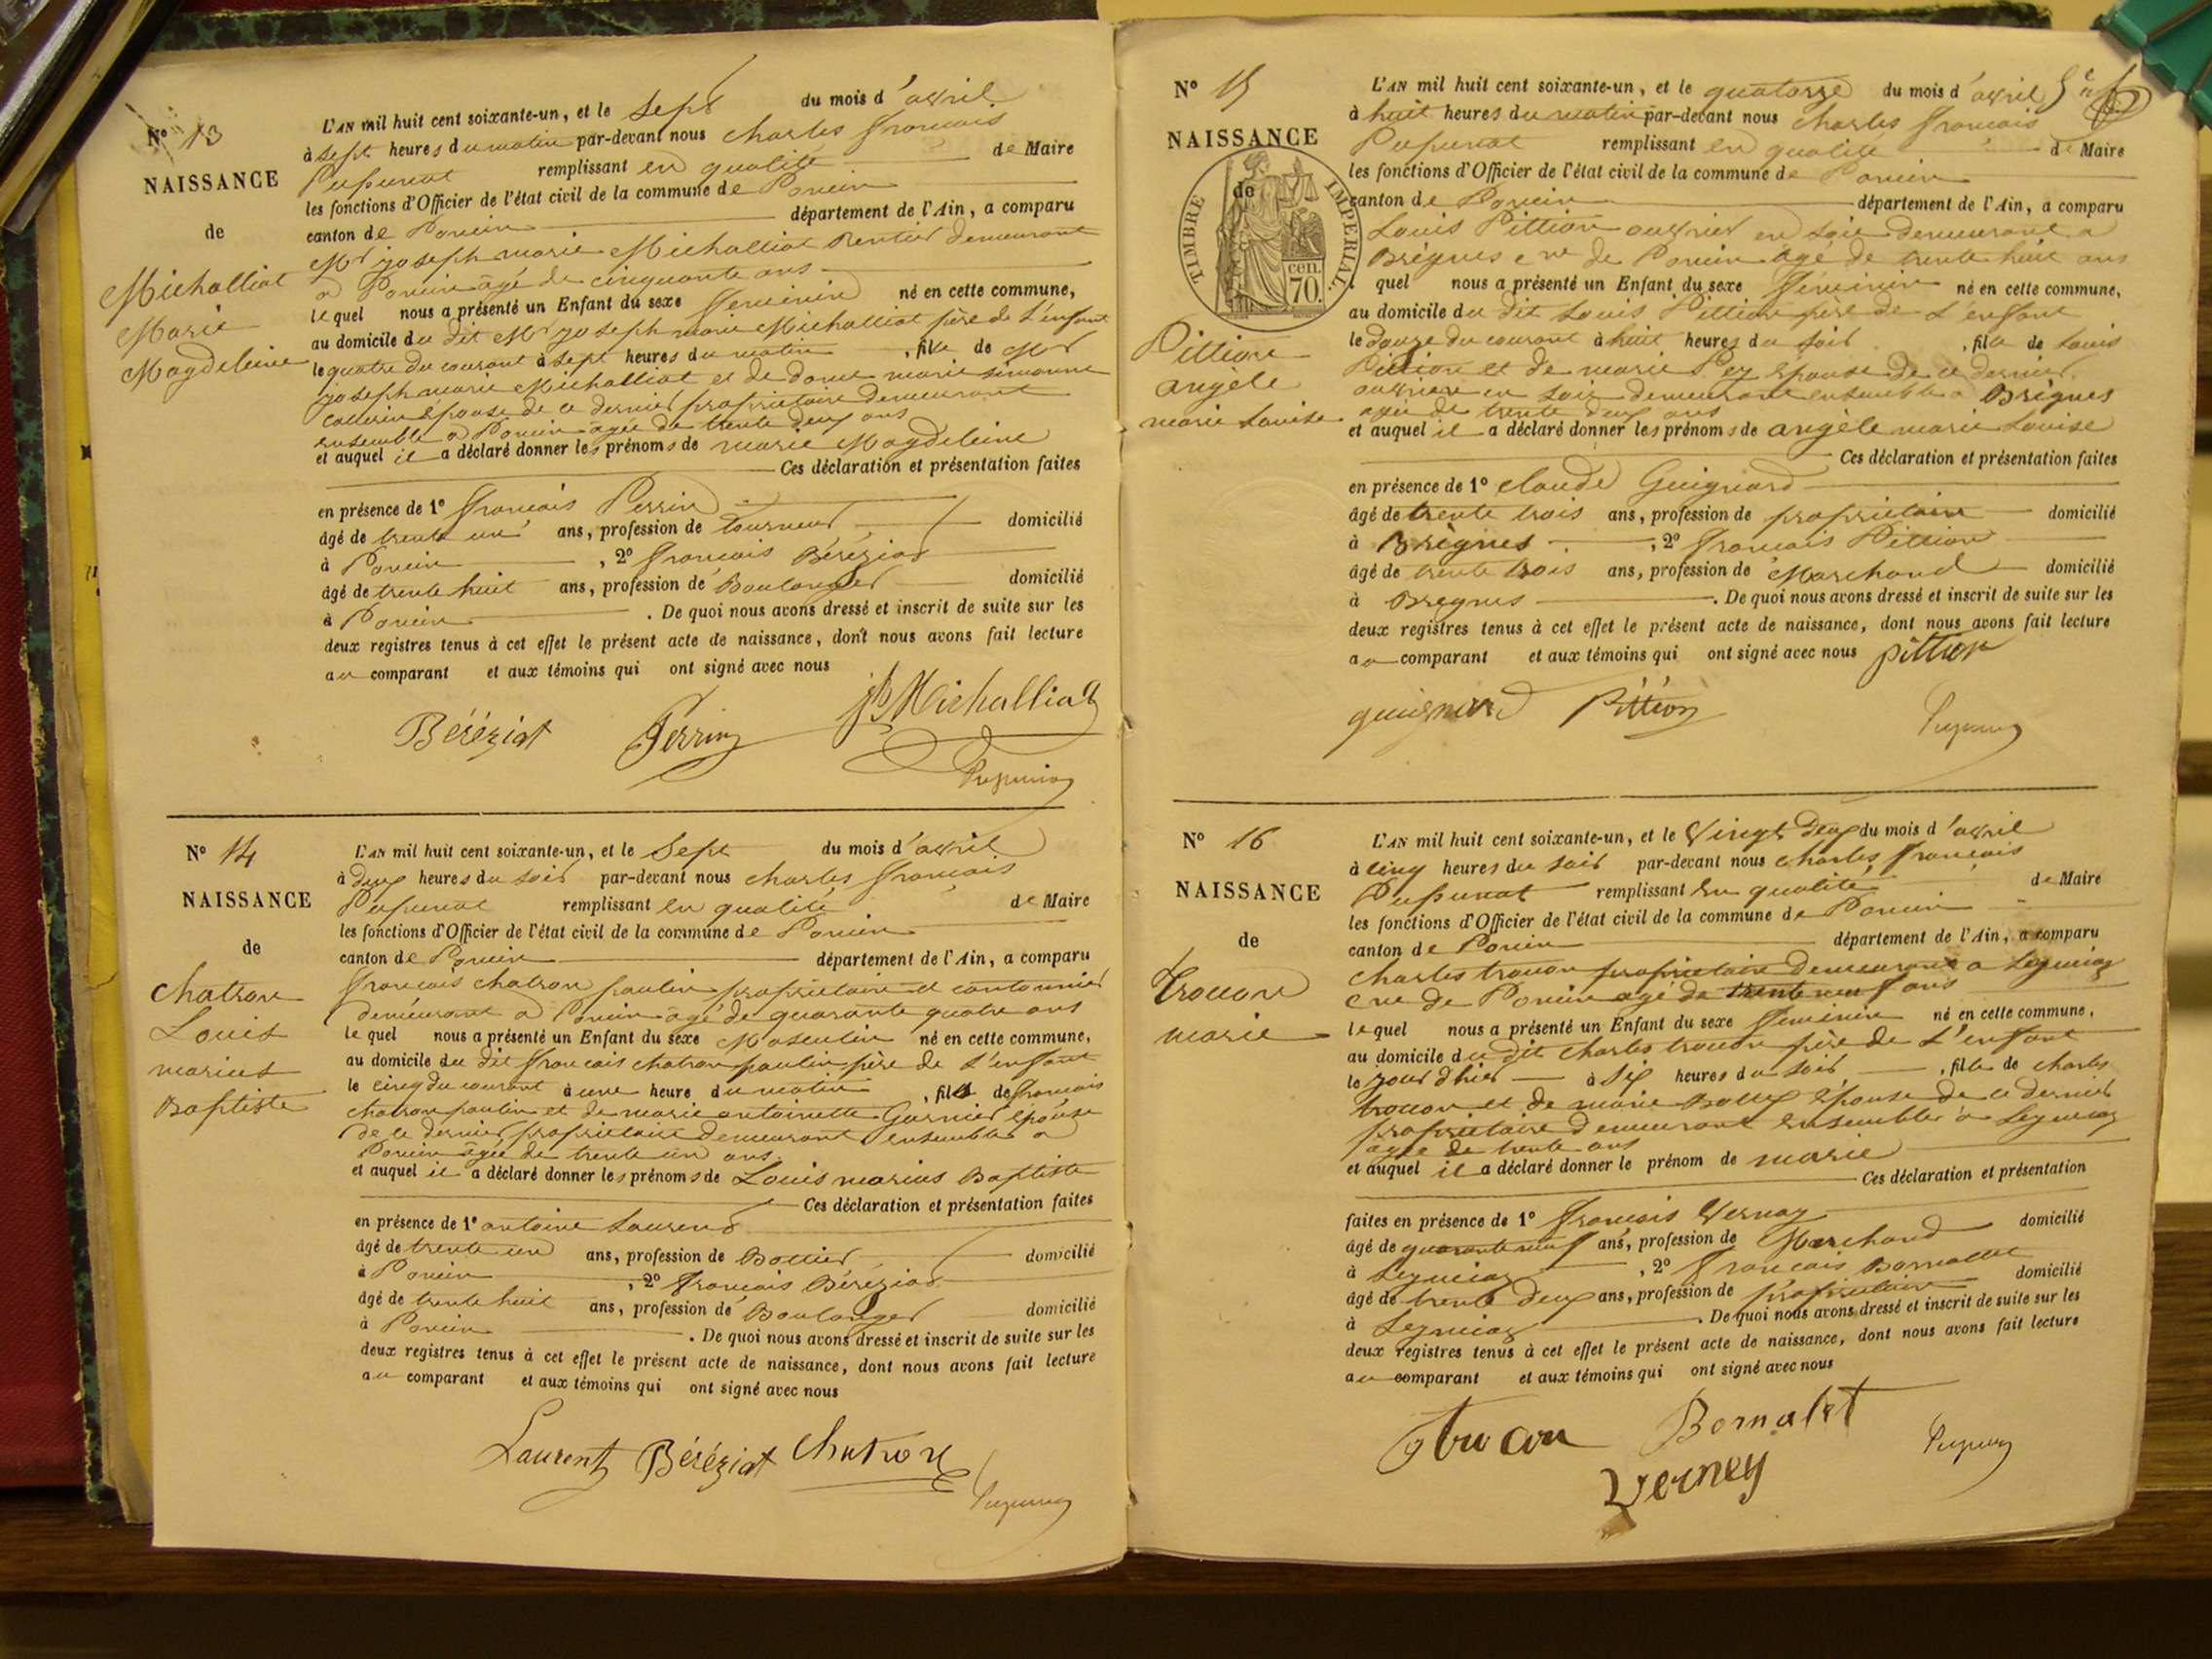 N° 13
NAISSANCE
de
Michalliat
Marie
Magdeleine
L'AN mil huit cent soixante-un, et le Sept du mois d'avril
à sept heures du matin par-devant nous Charles françois
Pupunat remplissant en qualité de Maire
les fonctions d'Officier de l'état civil de la commune de Poncin
canton de Poncin département de l'Ain, a comparu
Mr joseph marie Michalliat Rentier demeurant
a Poncin agé de cinquante ans
lequel nous a présenté un Enfant du sexe féminin né en cette commune,
au domicile du dit Mr joseph marie Michalliat père de l'enfant
le quatre du courant à sept heures du matin, fille de Mr
joseph marie Michalliat et de dame marie simonne
épouse de ce dernier propriétaire demeurant
ensemble a Poncin agée de trente deux ans
et auquel il a déclaré donner les prénoms de marie Magdeleine
Ces déclaration et présentation faites
en présence de 1° françois Perrin
âgé de trente un ans, profession de tourneur domicilié
à Poncin, 2° françois Béréziat
âgé de trente huit ans, profession de Boulanger domicilié
à Poncin. De quoi nous avons dressé et inscrit de suite sur les
deux registres tenus à cet effet le présent acte de naissance, dont nous avons fait lecture
au comparant et aux témoins qui ont signé avec nous
Béréziat Perrin jh Michalliat
Pupunat
N° 14
NAISSANCE
de
Chatron
Louis
marius
Baptiste
L'AN mil huit cent soixante-un, et le Sept du mois d'avril
à deux heures du soir par-devant nous Charles françois
Pupunat remplissant en qualité de Maire
les fonctions d'Officier de l'état civil de la commune de Poncin
canton de Poncin département de l'Ain, a comparu
françois chatron paulin propriétaire et cantonnier
demeurant a Poncin agé de quarante quatre ans
lequel nous a présenté un Enfant du sexe Masculin né en cette commune,
au domicile du dit françois chatron paulin père de l'enfant
le cinq du courant à une heure du matin, fils de françois
chatron paulin et de marie antoinette Garnier épouse
de ce dernier propriétaire demeurant ensemble a
Poncin agée de trente un ans
et auquel il a déclaré donner les prénoms de Louis marius Baptiste
Ces déclaration et présentation faites
en présence de 1° antoine Laurent
âgé de trente un ans, profession de Bottier domicilié
à Poncin, 2° françois Béréziat
âgé de trente huit ans, profession de Boulanger domicilié
à Poncin. De quoi nous avons dressé et inscrit de suite sur les
deux registres tenus à cet effet le présent acte de naissance, dont nous avons fait lecture
au comparant et aux témoins qui ont signé avec nous
Laurent Béréziat Chatron
Pupunat
N° 15
NAISSANCE
de
TIMBRE IMPERIAL
cen.
70.
Pittion
angèle
marie Louise
L'AN mil huit cent soixante-un, et le quatorze du mois d'avril
à huit heures du matin par-devant nous Charles françois
Pupunat remplissant en qualité de Maire
les fonctions d'Officier de l'état civil de la commune de Poncin
canton de Poncin département de l'Ain, a comparu
Louis Pittion ouvrier en soie demeurant a
Brégnes cne de Poncin agé de trente huit ans
quel nous a présenté un Enfant du sexe féminin né en cette commune,
au domicile du dit Louis Pittion père de l'enfant
le douze du courant à huit heures du soir, fille de Louis
Pittion et de marie Pey épouse de ce dernier
ouvrière en soie demeurant ensemble a Brégnes
agée de trente deux ans
et auquel il a déclaré donner les prénoms de angèle marie Louise
Ces déclaration et présentation faites
en présence de 1° claude Guignard
âgé de trente trois ans, profession de propriétaire domicilié
à Brégnes, 2° françois Pittion
âgé de trente trois ans, profession de Marchand domicilié
à Brégnes. De quoi nous avons dressé et inscrit de suite sur les
deux registres tenus à cet effet le présent acte de naissance, dont nous avons fait lecture
au comparant et aux témoins qui ont signé avec nous pittion
guignard Pittion
Pupunat
N° 16
NAISSANCE
de
Trouon
marie
L'AN mil huit cent soixante-un, et le Vingt deux du mois d'avril
à cinq heures du soir par-devant nous Charles françois
Pupunat remplissant en qualité de Maire
les fonctions d'Officier de l'état civil de la commune de Poncin
canton de Poncin département de l'Ain, a comparu
Charles trouon propriétaire demeurant a Leymiaz
cne de Poncin agé de trente neuf ans
lequel nous a présenté un Enfant du sexe féminin né en cette commune,
au domicile du dit Charles trouon père de l'enfant
le jour d'hier à six heures du soir, fille de Charles
trouon et de marie épouse de ce dernier
propriétaire demeurant ensemble a Leymiaz
agée de trente ans
et auquel il a déclaré donner le prénom de marie
Ces déclaration et présentation
faites en présence de 1° françois Vernay domicilié
âgé de quarante neuf ans, profession de Marchand
à Leymiaz, 2° françois Bornalet domicilié
âgé de trente deux ans, profession de propriétaire
à Leymiaz. De quoi nous avons dressé et inscrit de suite sur les
deux registres tenus à cet effet le présent acte de naissance, dont nous avons fait lecture
au comparant et aux témoins qui ont signé avec nous
Bornalet
Verney
Pupunat